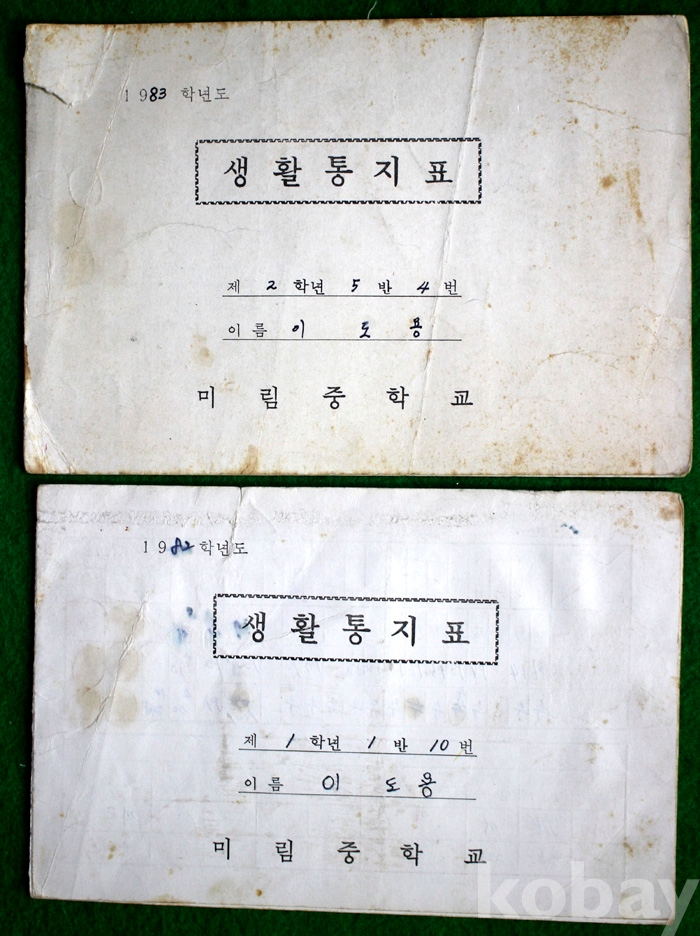 1983 학년도
생활통지표
제 2 학년 5 반 4 번
이름 이 도 용
미 림 중 학 교
1982 학년도
생활통지표
제 1 학년 1 반 10 번
이름 이 도 용
미 림 중 학 교
kobay